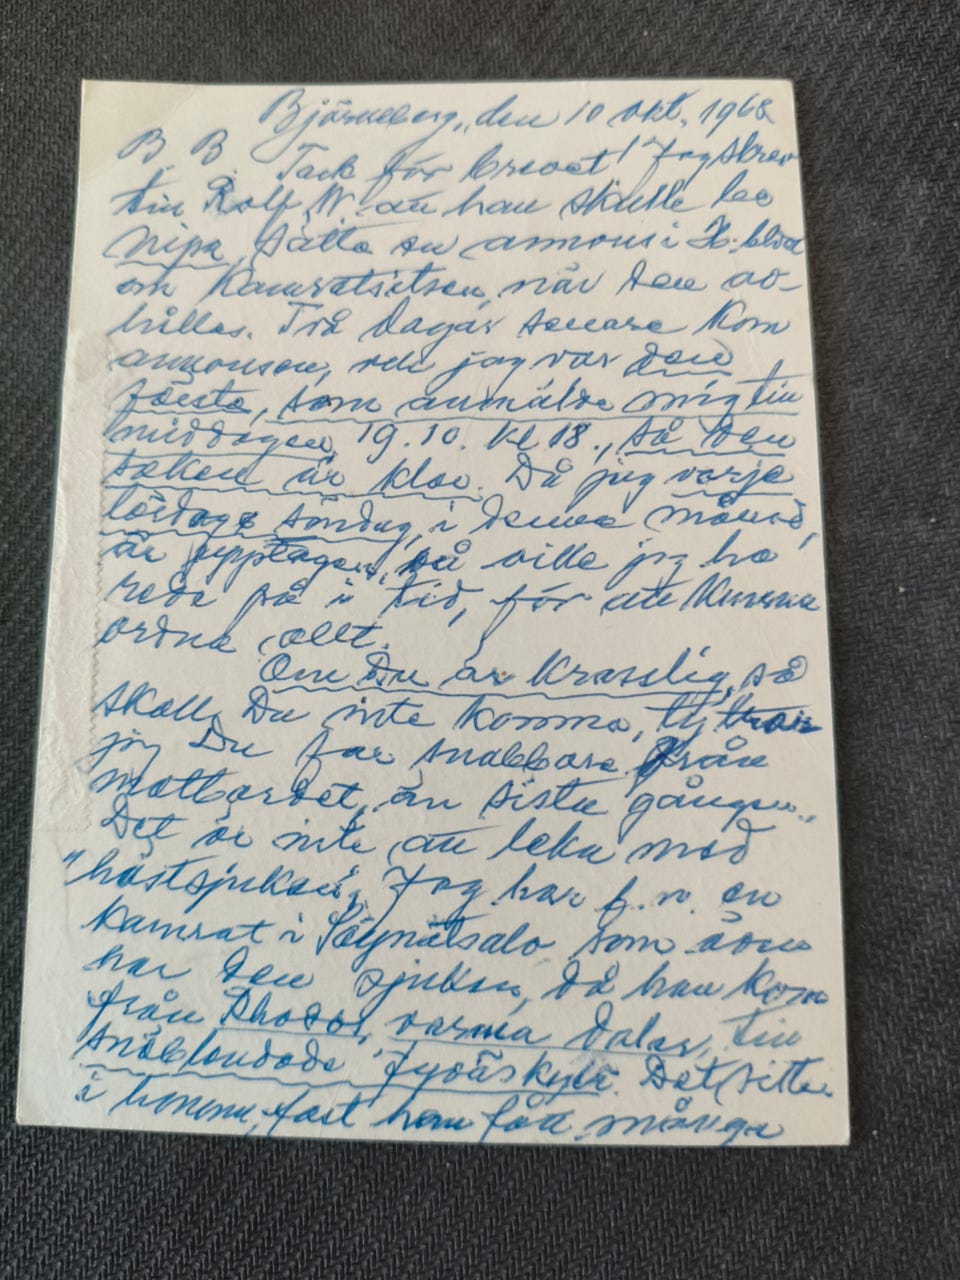 Björneborg, den 10 okt. 1968
B. B. Tack för brevet! Jag skrev
till Rolf W. att han skulle be
Nipa sätta en annons i H:bladet
om Kamratsitsen, när den av-
hålles. Två dagar senare kom
annonsen, och jag var den
första, som anmälde mig till
middagen 19.10. kl 18., så den
saken är klar. Då jag varje
lördag & söndag, i denna månad,
är upptagen, så ville jag ha
reda på i tid, för att kunna
ordna allt.
Om Du är krasslig, så
skall Du inte komma, ty
jag Du far snabbare från
matbordet, än sista gången.
Det är inte att leka med
"höstsjukan", Jag har f.n. en
kamrat i Säynätsalo som även
har den sjukan, då han kom
från Rhodos, varma dalar, till
snöblandade Jyväskylä. Det sitter
i honom, fast han fått många